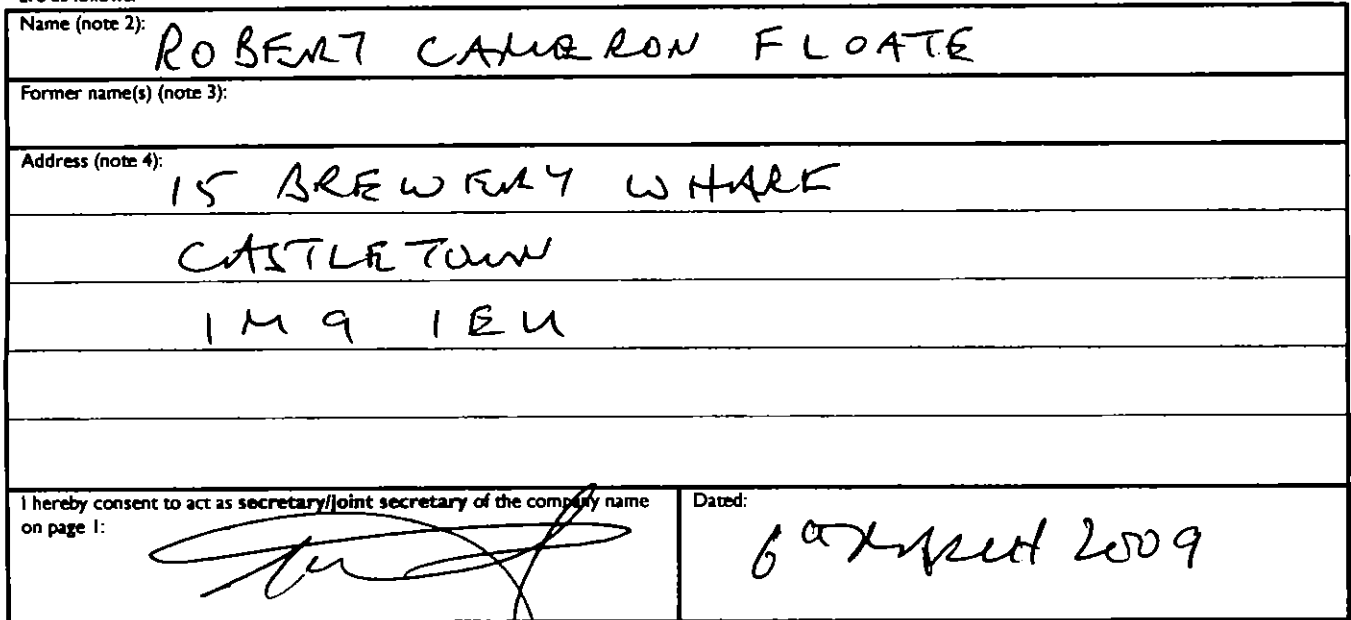 Name (note 2):
ROBERT CAMERON FLOATE
Former name(s) (note 3):
Address (note 4):
15 BREWERY WHARF
CASTLETOWN
IM9 1EU
I hereby consent to act as secretary/joint secretary of the company name
on page 1:
Dated:
6th 2009